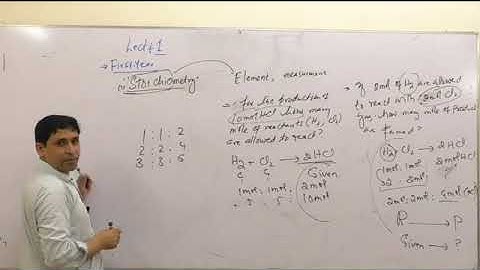 Lect # 1
→ First Year
"Stoichiometry"
Element, measurement
1 : 1 : 2
2 : 2 : 4
3 : 3 : 5
→ for the production of
10mol HCl how many
mole of reactants (H2, Cl2)
are allowed to react?
H2 + Cl2 → 2HCl
Given
1mol : 1mol : 2mol
5 : 5 : 10mol
→ If 2mol of H2 are allowed
to react with 2mol Cl2
gas, how many mole of product
are formed?
H2 + Cl2 → 2HCl
1mol : 1mol 2mol HCl
2mol : 2mol : 4mol
R → P
Given → ?